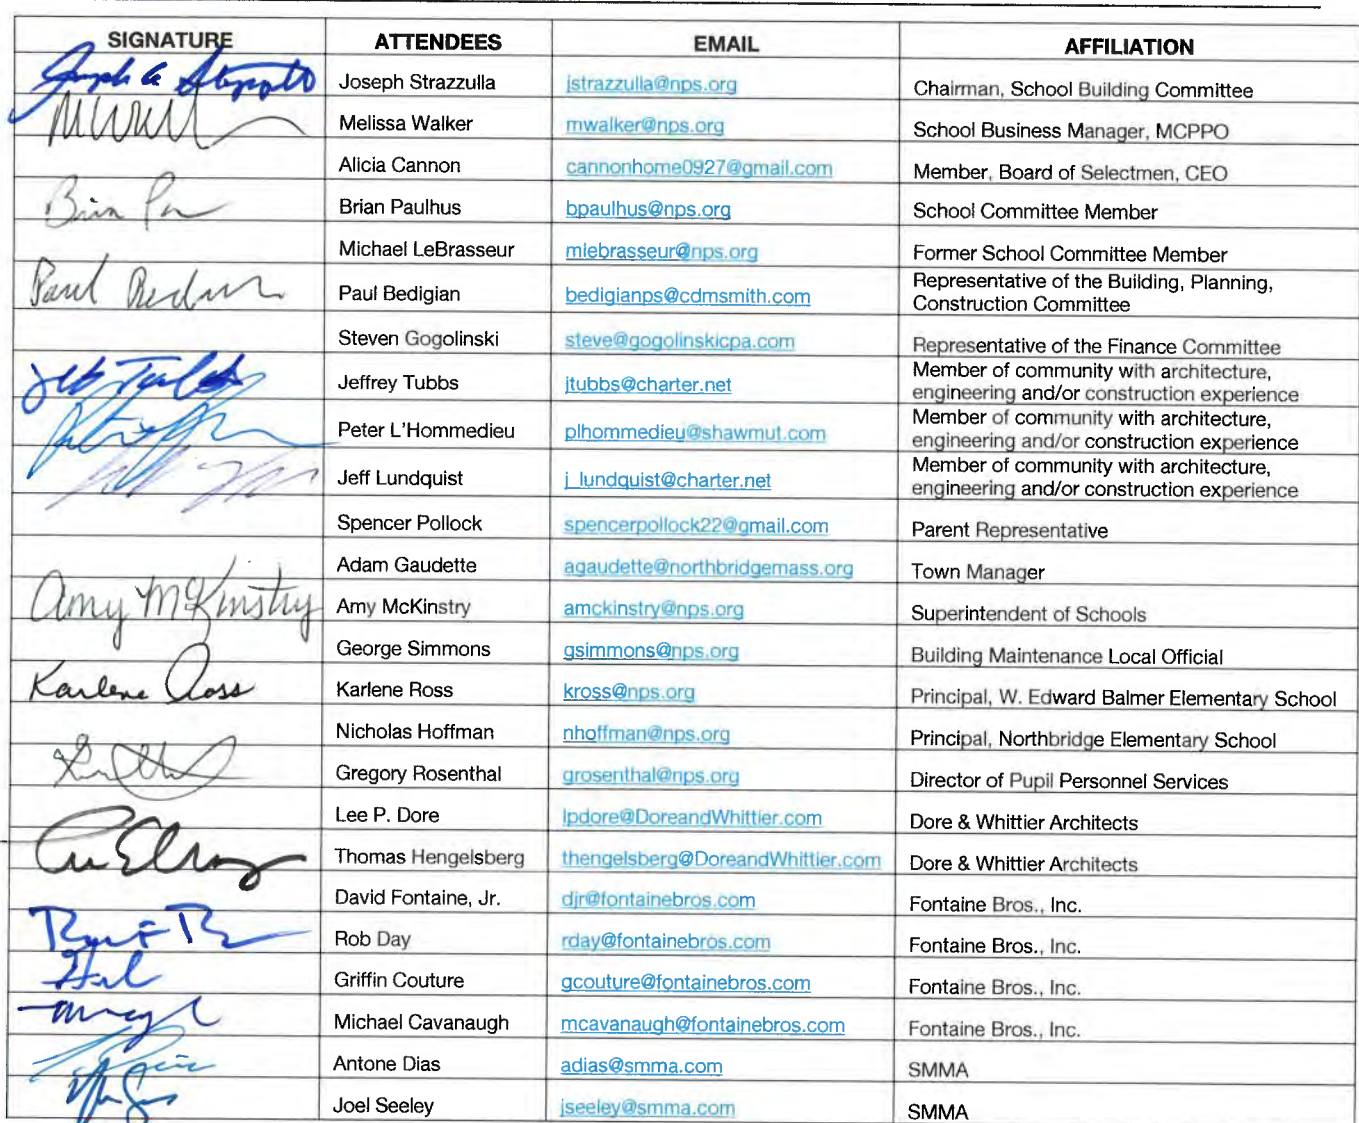 SIGNATURE ATTENDEES EMAIL AFFILIATION
Joseph Strazzulla jstrazzulla@nps.org Chairman, School Building Committee
Melissa Walker mwalker@nps.org School Business Manager, MCPPO
Alicia Cannon cannonhome0927@gmail.com Member, Board of Selectmen, CEO
Brian Paulhus bpaulhus@nps.org School Committee Member
Michael LeBrasseur mlebrasseur@nps.org Former School Committee Member
Paul Bedigian bedigianps@cdmsmith.com Representative of the Building, Planning,
Construction Committee
Steven Gogolinski steve@gogolinskicpa.com Representative of the Finance Committee
Jeffrey Tubbs jtubbs@charter.net Member of community with architecture,
engineering and/or construction experience
Peter L'Hommedieu plhommedieu@shawmut.com Member of community with architecture,
engineering and/or construction experience
Jeff Lundquist j_lundquist@charter.net Member of community with architecture,
engineering and/or construction experience
Spencer Pollock spencerpollock22@gmail.com Parent Representative
Adam Gaudette agaudette@northbridgemass.org Town Manager
Amy McKinstry Amy McKinstry amckinstry@nps.org Superintendent of Schools
George Simmons gsimmons@nps.org Building Maintenance Local Official
Karlene Ross Karlene Ross kross@nps.org Principal, W. Edward Balmer Elementary School
Nicholas Hoffman nhoffman@nps.org Principal, Northbridge Elementary School
Gregory Rosenthal grosenthal@nps.org Director of Pupil Personnel Services
Lee P. Dore lpdore@DoreandWhittier.com Dore & Whittier Architects
Thomas Hengelsberg thengelsberg@DoreandWhittier.com Dore & Whittier Architects
David Fontaine, Jr. djr@fontainebros.com Fontaine Bros., Inc.
Rob Day rday@fontainebros.com Fontaine Bros., Inc.
Griffin Couture gcouture@fontainebros.com Fontaine Bros., Inc.
Michael Cavanaugh mcavanaugh@fontainebros.com Fontaine Bros., Inc.
Antone Dias adias@smma.com SMMA
Joel Seeley jseeley@smma.com SMMA